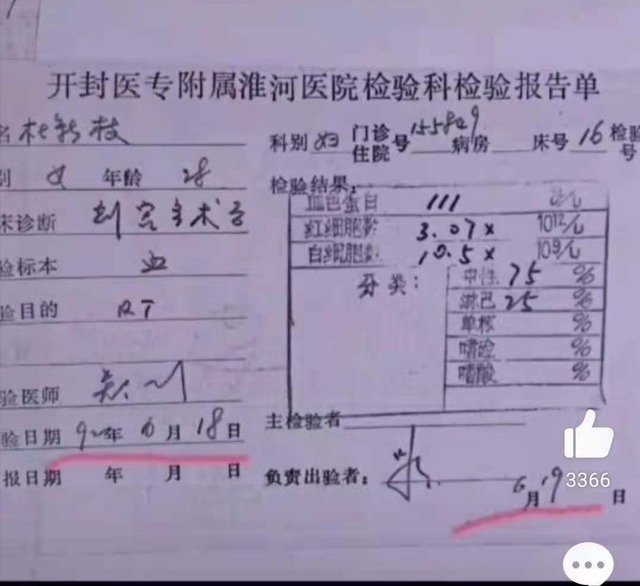 开封医专附属淮河医院检验科检验报告单
名 杜新枝
科别 妇 门诊住院号 155849 病房 床号 16 检验号
别 女 年龄 28
检验结果:
血色蛋白 111 g/L
床诊断 剖宫手术后
红细胞数 3.07× 10¹²/L
白细胞数 10.5× 10⁹/L
验标本 血
分类: 中性 75 %
淋巴 25 %
验目的 RT
单核 %
嗜硷 %
嗜酸 %
验医师
主检验者
验日期 92年 6月 18日
报日期 年 月 日
负责出验者:
6月19日
3366